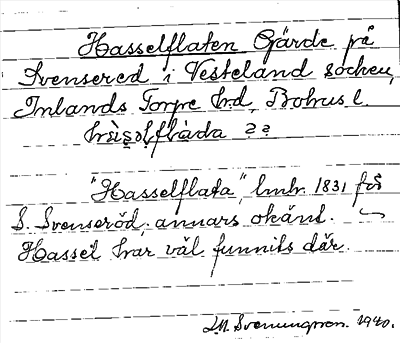 Hasselflaten Gärde på
Svensered i Vesteland socken,
Inlands Torpe hrd, Bohus l.
hràs̥ə̀lflàda ??
"Hasselflata", lmhr. 1831 för
S. Svenseröd, annars okänt.
Hassel har väl funnits där.
1940.